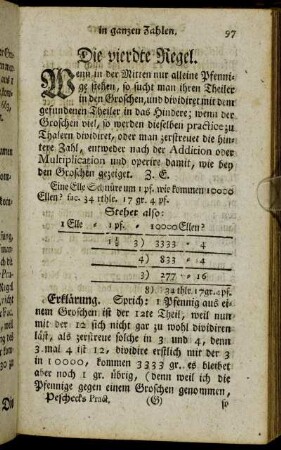 in ganzen Zahlen. 97
Die vierdte Regel.
Wenn in der Mitten nur alleine Pfenni-
ge stehen, so sucht man ihren Theiler
in den Groschen, und dividiret mit dem
gefundenen Theiler in das Hindere; wenn der
Groschen viel, so werden dieselben practice zu
Thalern dividiret, oder man zerstreuet die hin-
tere Zahl, entweder nach der Addition oder
Multiplication und operire damit, wie bey
den Groschen gezeiget. Z. E.
Eine Elle Schnüre um 1 pf. wie kommen 10000
Ellen? fac. 34 thlr. 17 gr. 4 pf.
Stehet also:
1 Elle - 1 pf. - 10000 Ellen?
3) 3333 - 4
4) 833 - 4
3) 277 - 16
8) 34 thlr. 17 gr. 4 pf.
Erklärung. Sprich: 1 Pfennig aus ei-
nem Groschen ist der 12te Theil, weil nun
mit der 12 sich nicht gar zu wohl dividiren
läst, als zerstreue solche in 3 und 4, denn
3 mal 4 ist 12, dividire erstlich mit der 3
in 10000, kommen 3333 gr. es bleibet
aber noch 1 gr. übrig, (denn weil ich die
Pfennige gegen einem Groschen genommen,
Peschecks Pract. (G) so